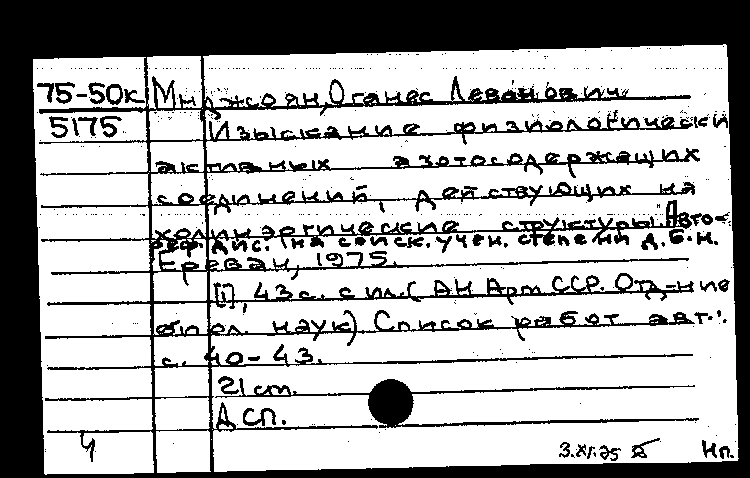 75-50к Мнджоян, Оганес Левонович.
5175 Изыскание физиологически
активных азотосодержащих
соединений, действующих на
холинэргические структуры. Авто-
реф. дис. на соиск. учен. степени д.б.н.
Ереван, 1975.
[1], 43 с. с ил. (АН Арм ССР. Отд-ние
биол. наук) Список работ авт.:
с. 40-43.
21 см.
ДСП.
Ч 3.XI.75 Нп.